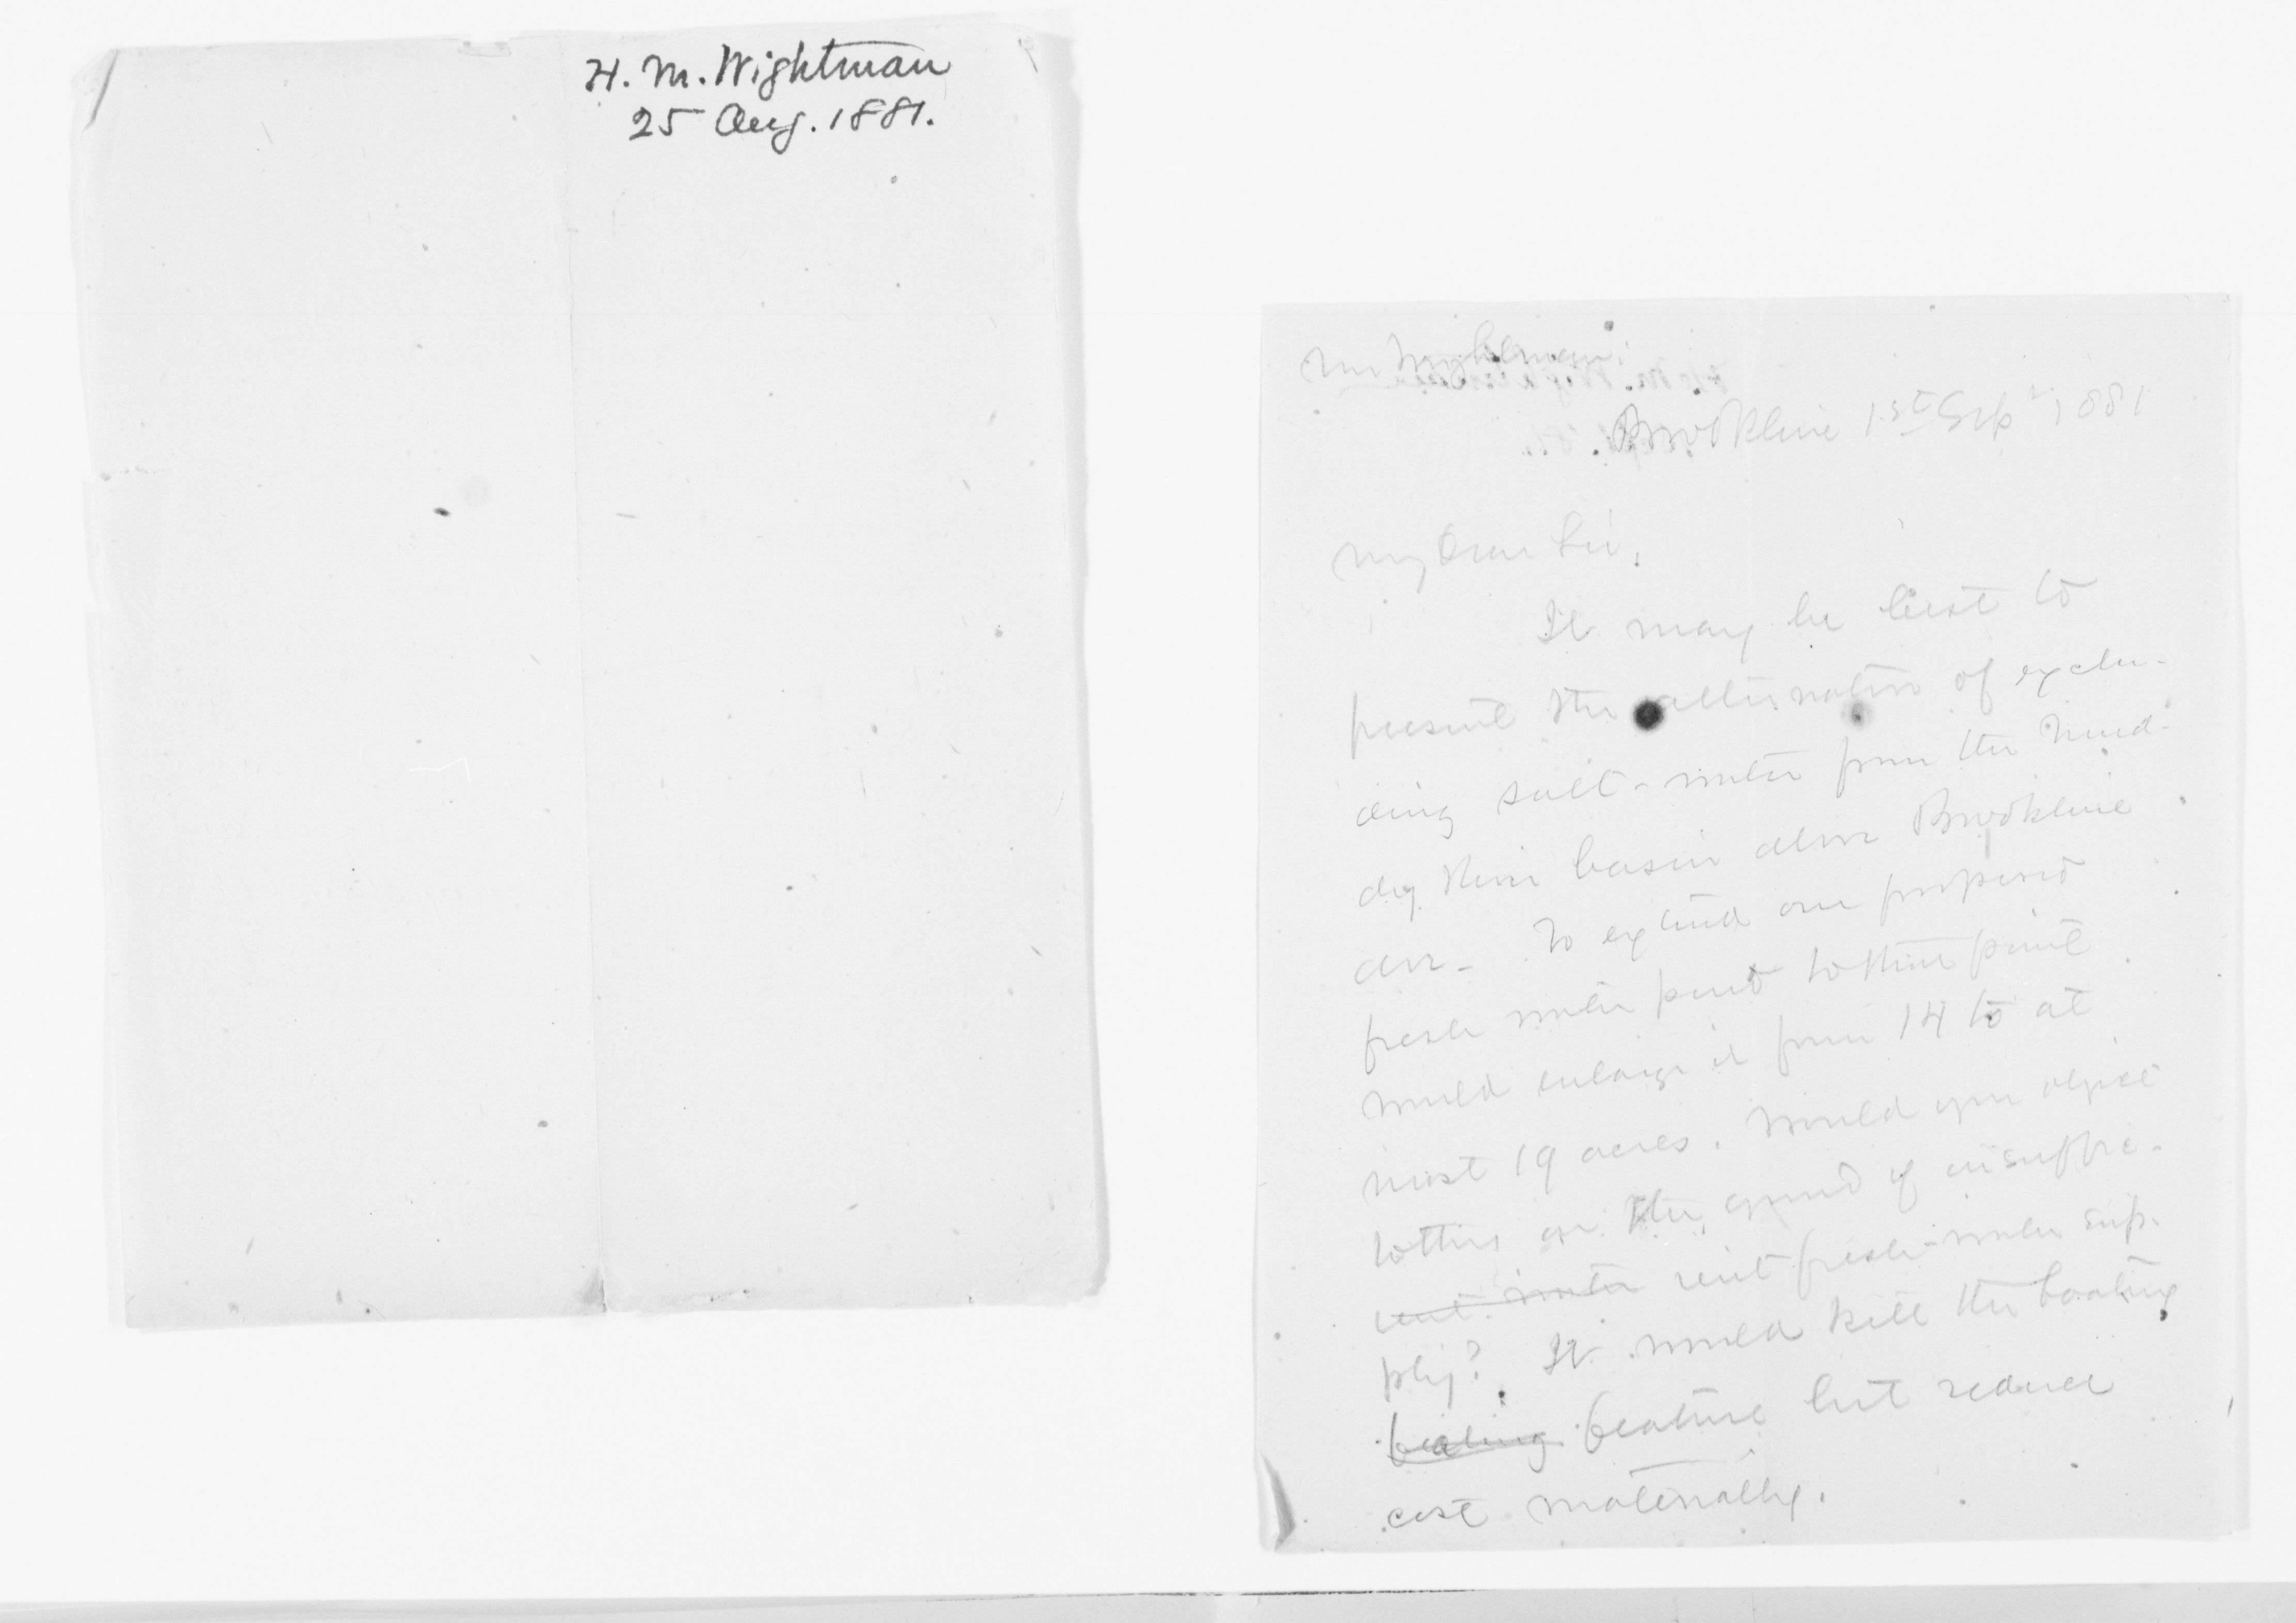 H. M. Wightman
25 Aug. 1881.
Mr Wightman:
Brookline 1st Sept 1881
My Dear Sir,
It may be best to
present the alternative of exclu-
ding salt-water from the Mud-
dy River basin above Brookline
Ave- To extend our proposed
fresh water pond to this point
would enlarge it from 14 to at
most 19 acres. Would you object
to this on the ground of insuffic-
ient water ient fresh-water sup-
ply? It would kill the boating
boating feature but reduce
cost materially.